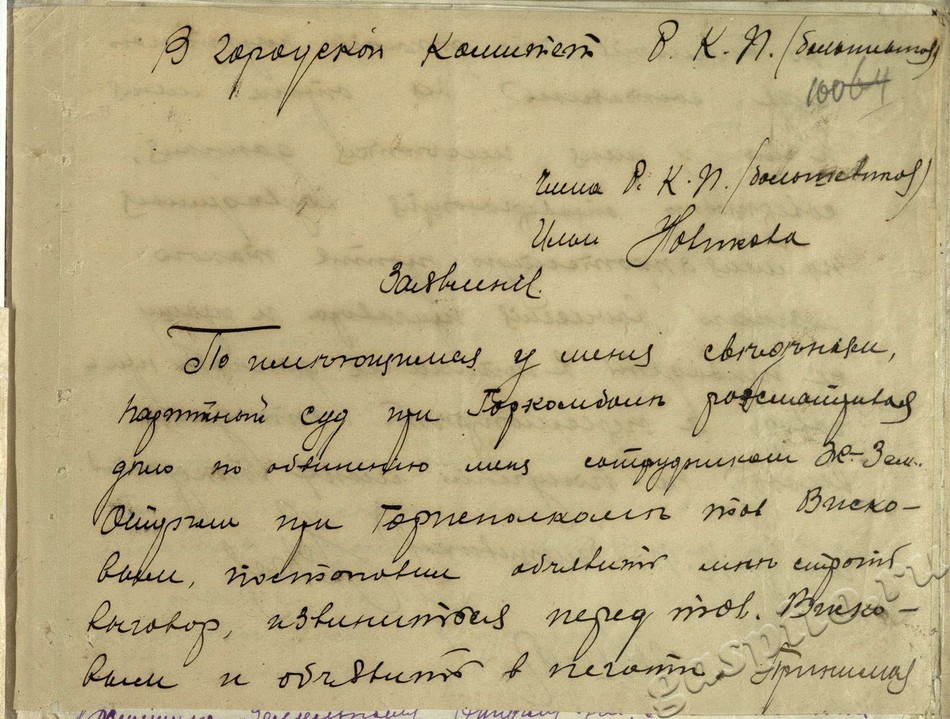 В городской комитет Р. К. П. (большевиков)
10064
Члена Р. К. П. (большевиков)
Ильи Новикова
Заявление.
По имеющимся у меня сведениям,
партийный суд при Горкомболь рассматривая
дело по обвинению меня сотрудником Ж-Зем.
Отдела при Горисполкоме тов Виско-
вым, постановил объявить мне строгий
выговор, извиниться перед тов. Виско-
вым и объявить в печати. Принимая
gaspito.ru